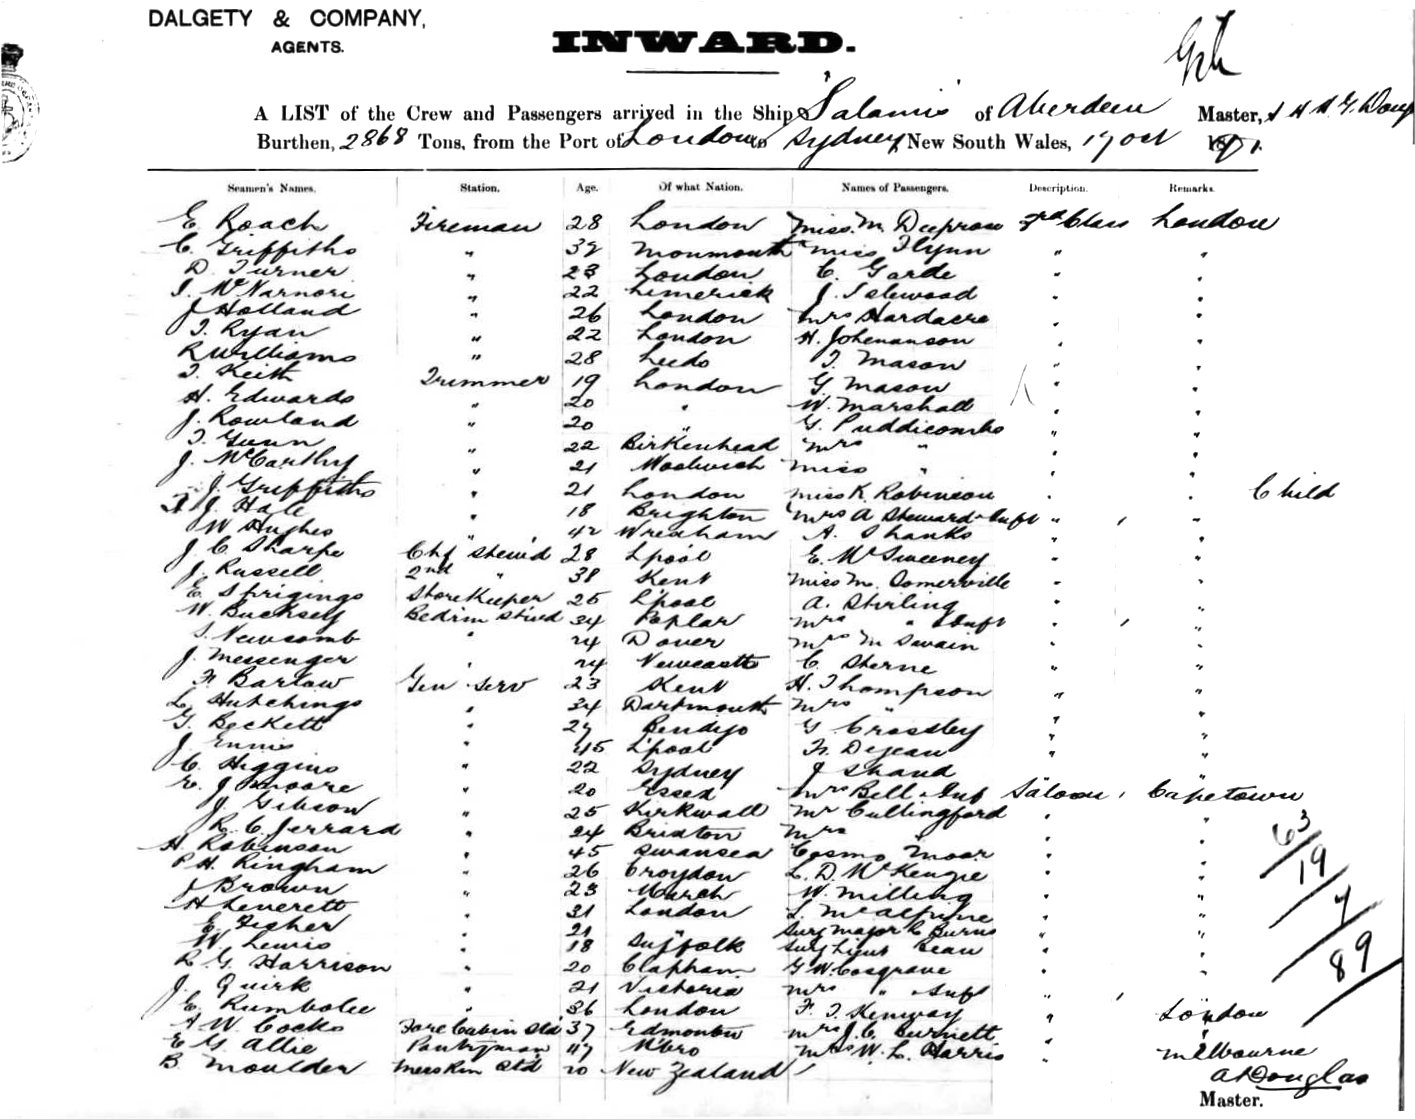 DALGETY & COMPANY,
AGENTS.
INWARD.
A LIST of the Crew and Passengers arrived in the Ship "Salamis" of Aberdeen Master, A H H G Doug
Burthen, 2868 Tons, from the Port of London to Sydney, New South Wales, 17 Oct 1
Seamen's Names. Station. Age. Of what Nation. Names of Passengers. Description. Remarks.
E Roach Fireman 28 London Miss M. Deeprose 3rd Class London
C. Griffiths " 32 Monmouth Miss Flynn " "
D. Turner " 23 London C. Garde " "
I. McNarnori " 22 Limerick J. Islewood " "
J Holland " 26 London Mrs Hardacre " "
T. Ryan " 22 London H. Johenanson " "
R Williams " 28 Leeds T. Mason " "
T. Keith Trimmer 19 London G. Mason " "
H. Edwards " 20 " W. Marshall " "
J. Rowland " 20 " G. Puddicombe " "
T. Gunn " 22 Birkenhead Mrs " " "
J. McCarthy " 21 Woolwich Miss " " "
J. Griffiths " 21 London Miss K. Robinson " " Child
J. Hale " 18 Brighton Mrs A Steward & Inft " "
W Hughes " 42 Wrexham A. Shanks " "
J. C Sharpe Chf Stew'd 28 L'pool E. McSweeney " "
J. Russell 2nd " 38 Kent Miss M. Somerville " "
E. Sprigings Store Keeper 25 L'pool A. Stirling " "
W. Bucksey Bedrm Stew'd 34 Poplar Mrs " & Inft " "
S. Newcomb " 24 Dover Mrs M Swain " "
J. Messenger " 24 Newcastle C. Sterne " "
F. Barlow Gen Serv 23 Kent H. Thompson " "
L. Hutchings " 34 Dartmouth Mrs " " "
G. Beckett " 27 Bendigo G Crossley " "
J. Ennis " 45 L'pool Fr. Dejean " "
C. Higgins " 22 Sydney J Shand "
E. J Moore " 20 Essex Mrs Bell & Inf Saloon Capetown
J. Gibson " 25 Kirkwall Mr Cullingford " "
R. C Jerrard " 24 Brixton Mrs " " "
H. Robinson " 45 Swansea Cosmo Moor " "
P. H. Ringham " 26 Croydon L. D. McKenzie " "
J Brown " 23 March W. Milling " "
H Leverett " 31 London L. McAlpine " "
E. Fisher " 21 " Surg Major R Burns " "
W. Lewis " 18 Suffolk Surg Lieut Bean " "
R. G. Harrison " 20 Clapham G W. Cosgrave " "
J. Quirk " 21 Victoria Mrs " & Inft " "
E. Rumbolee " 36 London F. T. Kenway " London
A W. Cocks Fore Cabin Std 37 Edmonton Mrs J. C. Burnett " "
E G. Allie Pantryman 47 M'bro Mrs W. L. Harris " Melbourne
B. Moulder Mess Rm Std 20 New Zealand
63
19
7
89
A Douglas
Master.